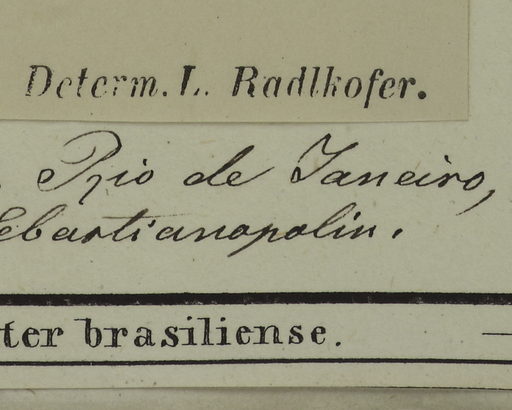 Determ. L. Radlkofer.
Rio de Janeiro,
ebastianopolin.
ter brasiliense.